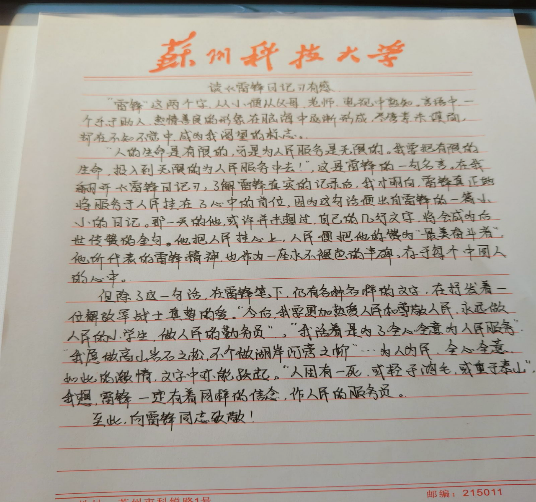 蘇州科技大學
读《雷锋日记》有感
"雷锋"这两个字,从小便从父母、老师、电视中熟知。言语中一
个乐于助人、热情善良的形象在脑海中逐渐形成,
却在不知不觉中成为我阅读的
"人的生命是有限的,可是为人民服务是无限的。我要把有限的
生命,投入到无限的为人民服务中去!",这是雷锋的一句名言。在我
翻开《雷锋日记》,了解雷锋真实的记录后,我才明白,雷锋真正地
将服务于人民挂在了心中的首位,因为这句话便出自雷锋的一篇小
小的日记。那一天的他,或许并未想过,自己的几行文字,将会成为后
世传诵的金句。他把人民挂心上,人民便把他的 "最美奋斗者"
他所代表的雷锋精神也作为一座永不褪色的丰碑,存于每个中国人
的心中。
但除了这一句话,在雷锋笔下,仍有各种各样的文字,在抒发着一
位解放军战士真挚的爱。"今后,我要更加热爱人民和尊敬人民,永远做
人民的小学生,做人民的勤务员","我活着是为了全心全意为人民服务"
"我愿做高山岩石之松,不做湖岸河旁之柳"…为人为民,全心全意
如此的激情,文字中亦能跃起。"人固有一死,或轻于鸿毛,或重于泰山",
我想,雷锋一定存着同样的信念,作人民的服务员。
至此,向雷锋同志致敬!
苏州市科锐路1号
邮编:215011